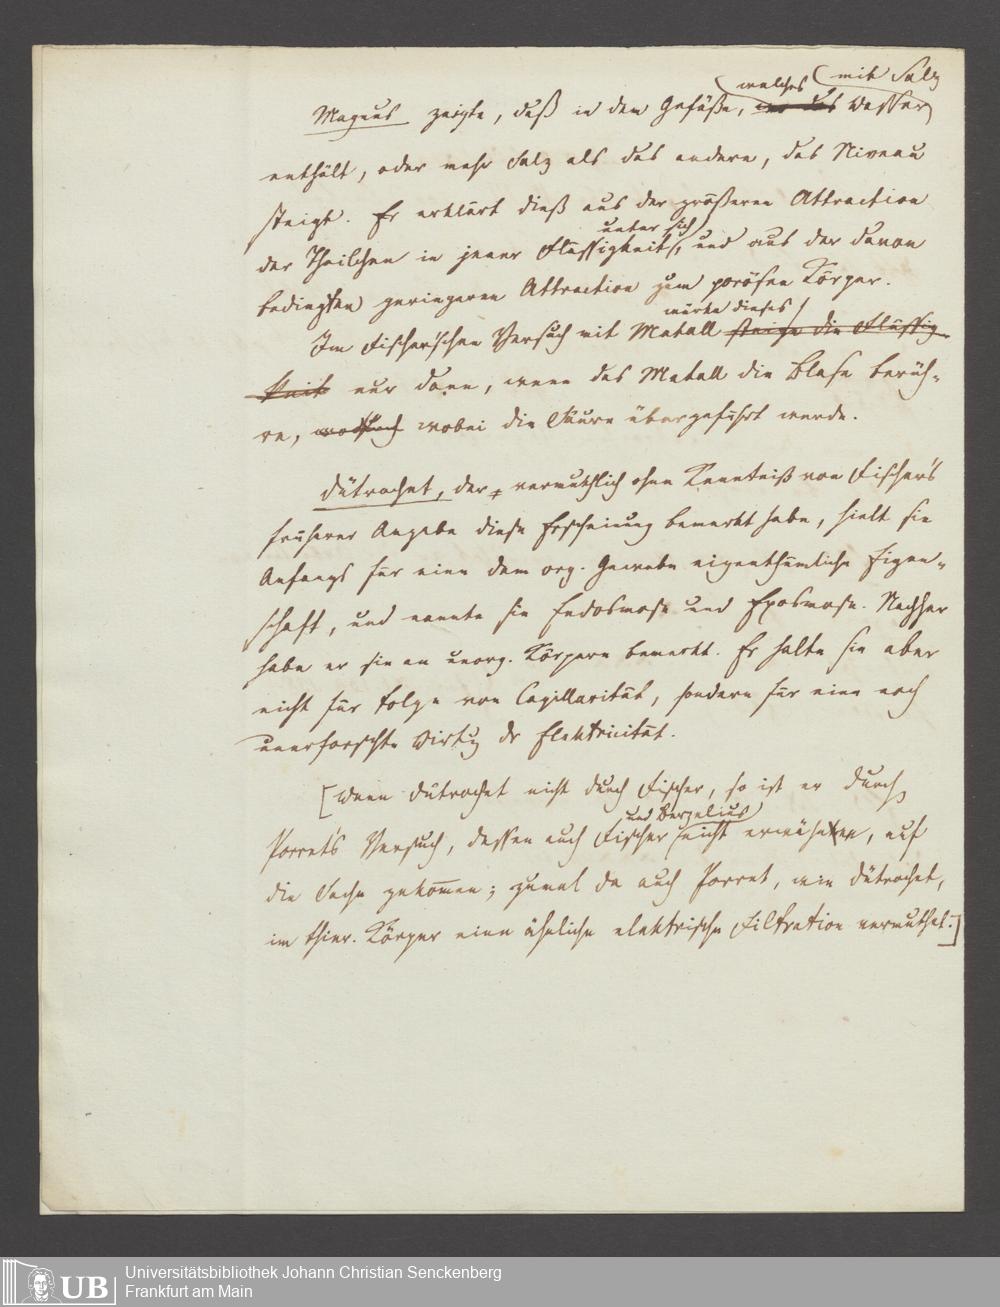 Magnus zeigte, daß in dem Gefäße, welches Wasser mit Salz
enthält, oder mehr Salz als das andere, das Niveau
steigt. Er erklärt dieß aus der größeren Attraction
der Theilchen in jener Flüssigkeit unter sich, und aus der davon
bedingten geringeren Attraction zum porösen Körper.
Im Fischer'schen Versuch mit Metall wirke dieses steige die Flüssig-
keit nur dann, wenn das Metall die Blase berüh-
re, wobei die Säure übergeführt werde.
Dütrochet, der vermuthlich ohne Kenntniß von Fischer's
früherer Angabe diese Erscheinung bemerkt habe, hielt sie
Anfangs für eine dem org. Gewebe eigenthümliche Eigen-
schaft, und nannte sie Endosmose und Exosmose. Nachher
habe er sie an unorg. Körpern bemerkt. Er halte sie aber
nicht für Folge von Capillarität, sondern für eine noch
unerforschte Wirkg der Elektricität.
[Wenn Dütrochet nicht durch Fischer, so ist er durch
Porret's Versuch, dessen auch Fischer und Berzelius nicht erwähnen, auf
die Sache gekommen; zumal da auch Porret, wie Dütrochet,
im thier. Körper eine ähnliche elektrische Filtration vermuthet.]
Universitätsbibliothek Johann Christian Senckenberg
Frankfurt am Main
UB